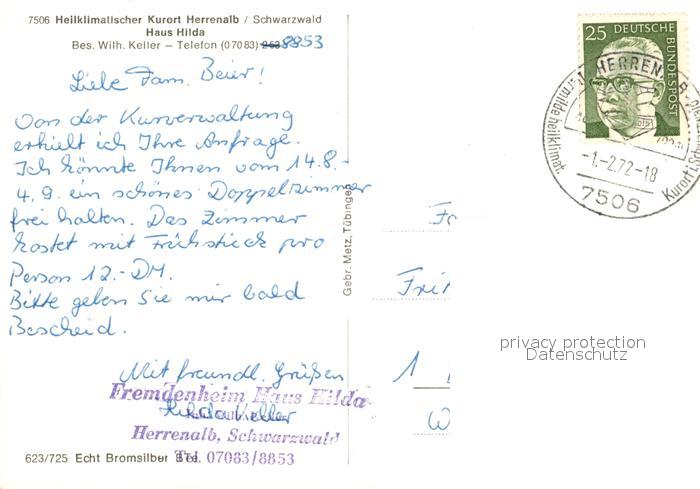 7506 Heilklimatischer Kurort Herrenalb / Schwarzwald
Haus Hilda
Bes. Wilh. Keller – Telefon (07083) 253 8853
Liebe Fam. Beier!
Von der Kurverwaltung
erhielt ich Ihre Anfrage.
Ich könnte Ihnen vom 14.8.-
4.9. ein schönes Doppelzimmer
frei halten. Das Zimmer
kostet mit Frühstück pro
Person 12.- DM.
Bitte geben Sie mir bald
Bescheid.
Mit freundl. Grüßen
Hilda Keller
Fremdenheim Haus Hilda
Herrenalb, Schwarzwald
Tel. 07083/8853
623/725 Echt Bromsilber
Gebr. Metz, Tübingen
25 DEUTSCHE BUNDESPOST
HERREN
heilklimat
Kurort
-1.-2.72-18
7506
Fa
Fri
1
W
privacy protection
Datenschutz